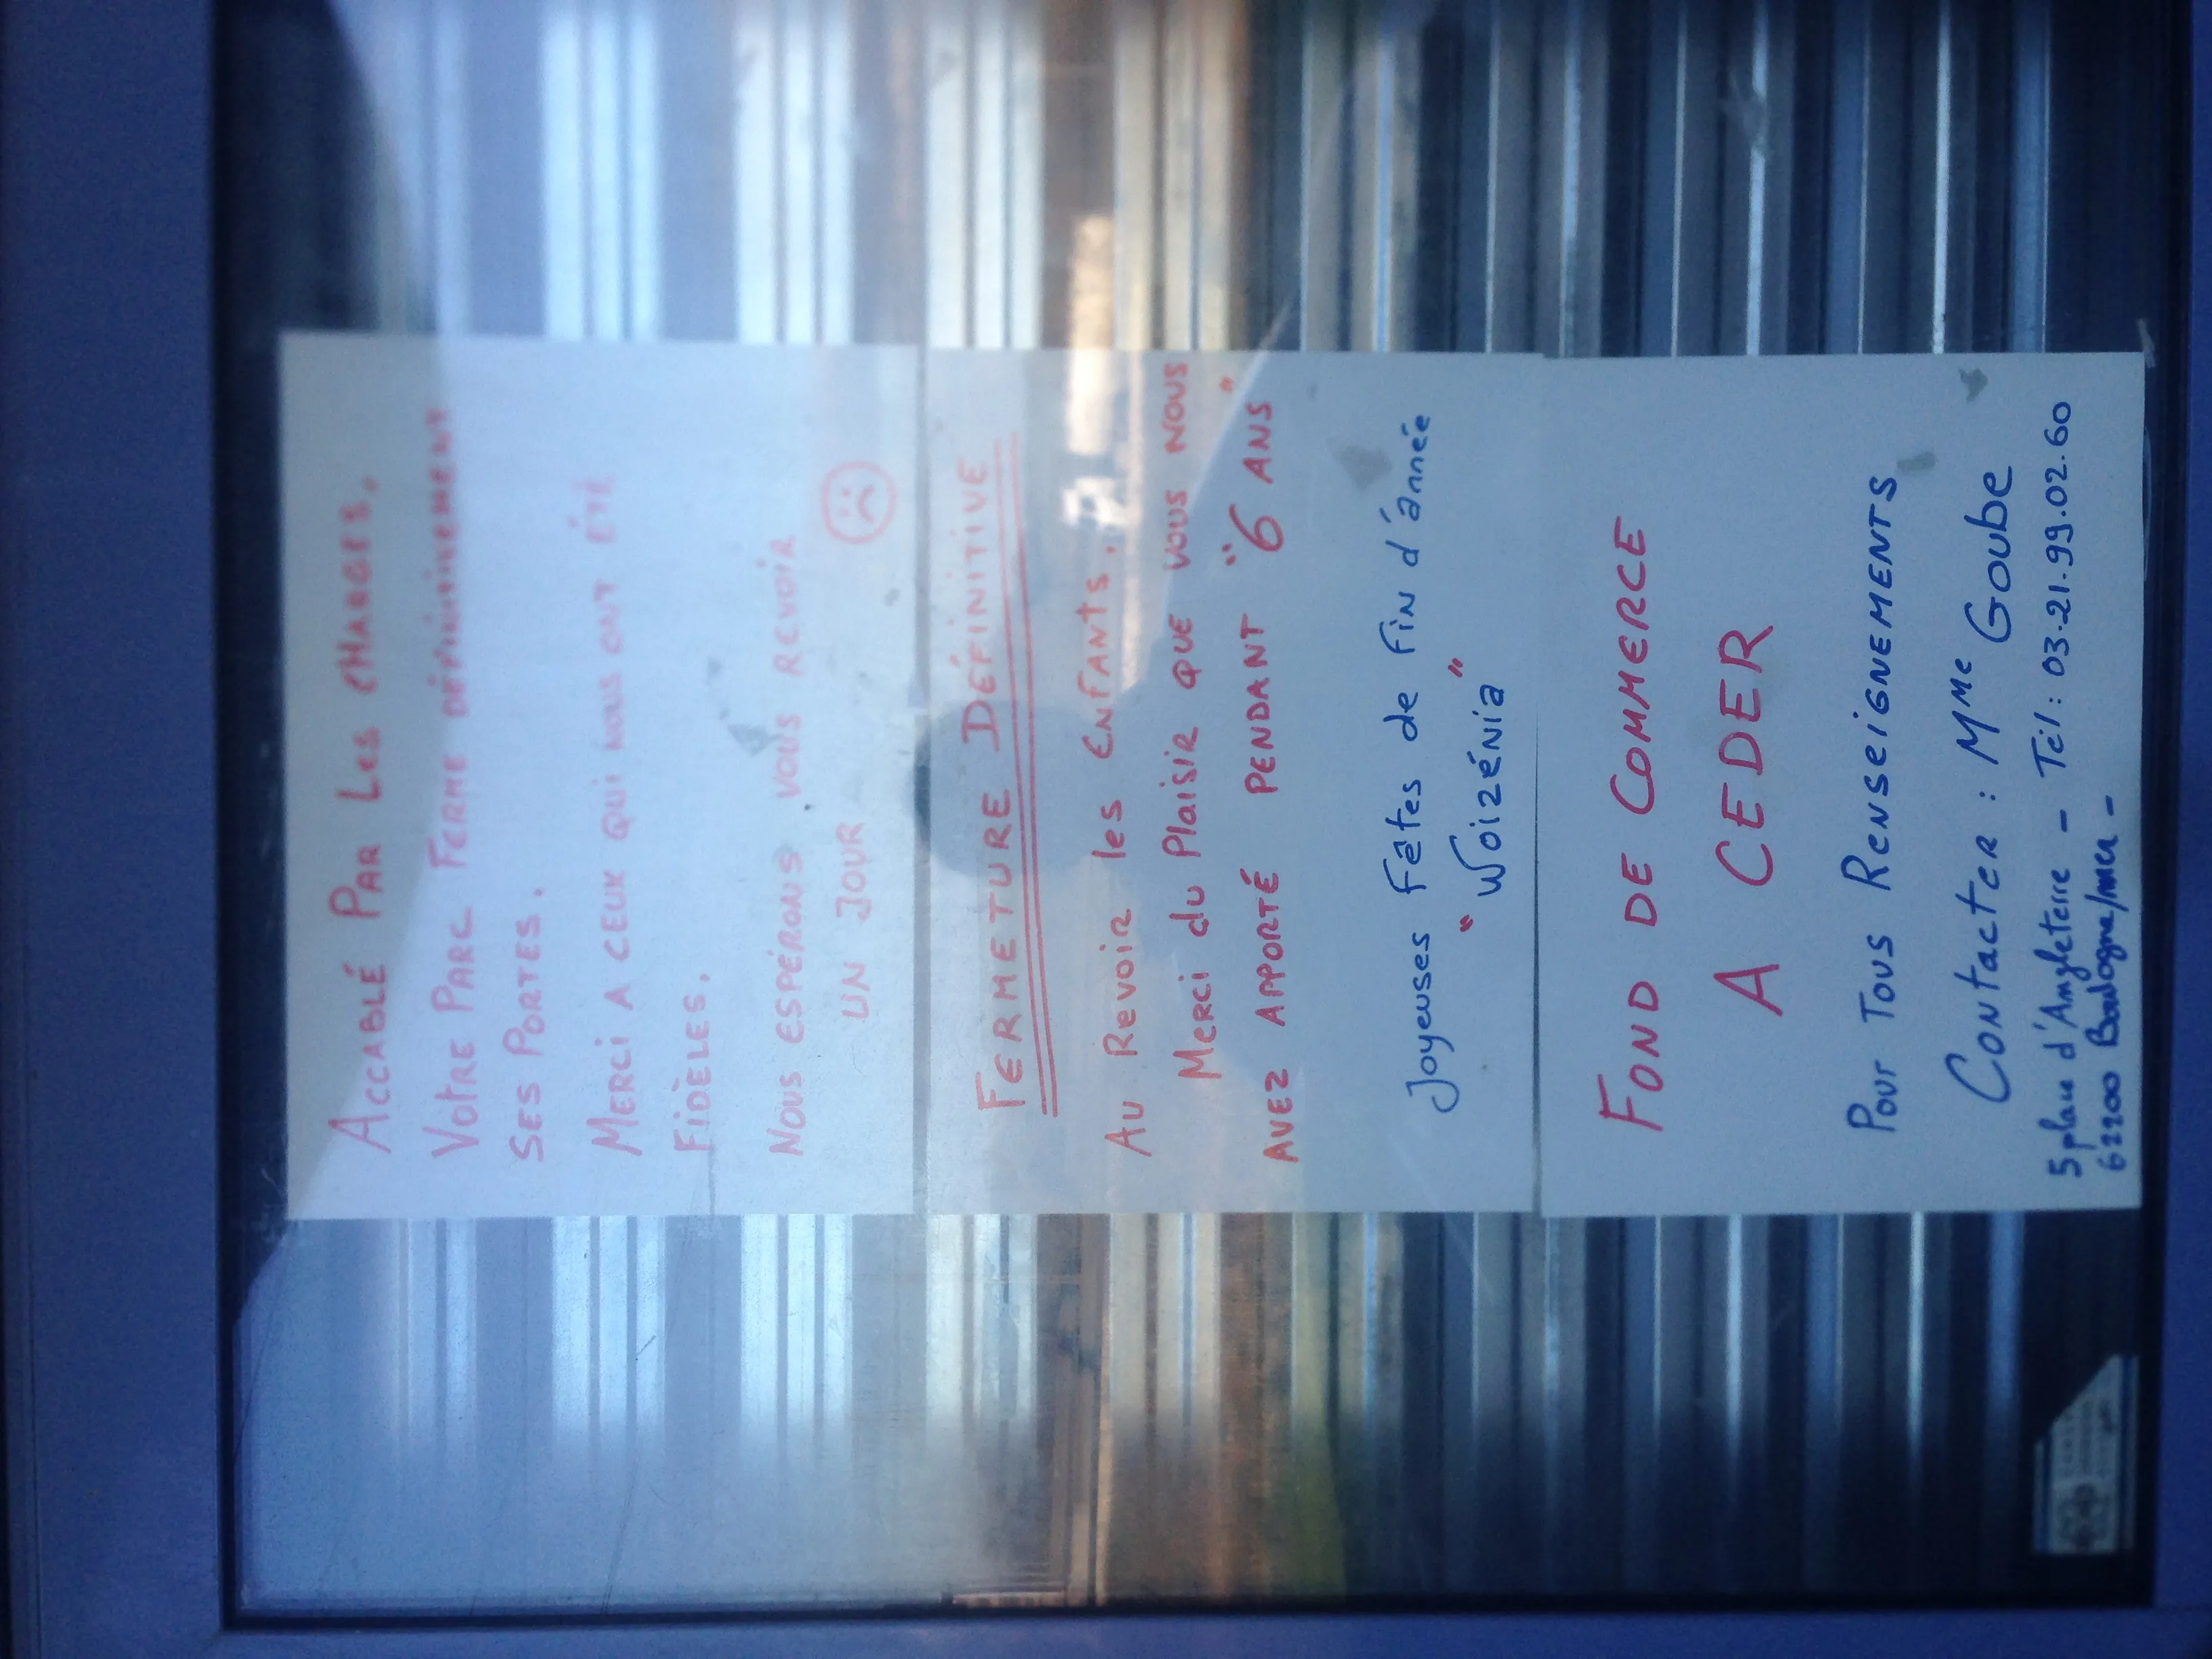 ACCABLÉ PAR LES CHARGES,
VOTRE PARC FERME DÉFINITIVEMENT
SES PORTES.
MERCI A CEUX QUI NOUS ONT ÉTÉ
FIDÈLES.
NOUS ESPÉRONS VOUS REVOIR
UN JOUR
FERMETURE DÉFINITIVE
AU REVOIR les ENFANTS.
MERCI du Plaisir QUE VOUS NOUS
AVEZ APPORTÉ PENDANT "6 ANS"
Joyeuses Fêtes de Fin d'année
"Woizénia"
FOND DE COMMERCE
A CEDER
POUR TOUS RENSEIGNEMENTS
CONTACTER : Mme Goube
5 place d'Angleterre - Tél : 03.21.99.02.60
62200 Boulogne/mer -